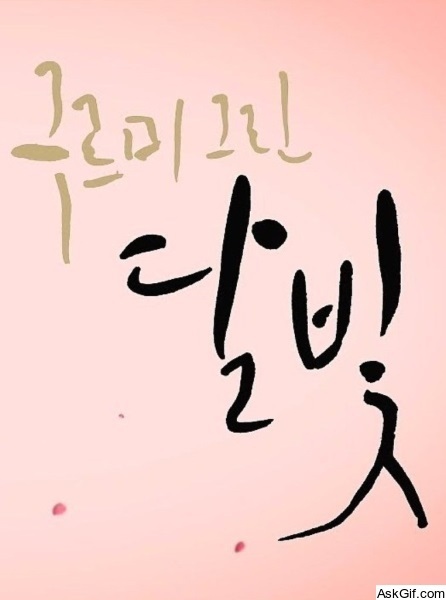 구르미 그린
달빛
AskGif.com